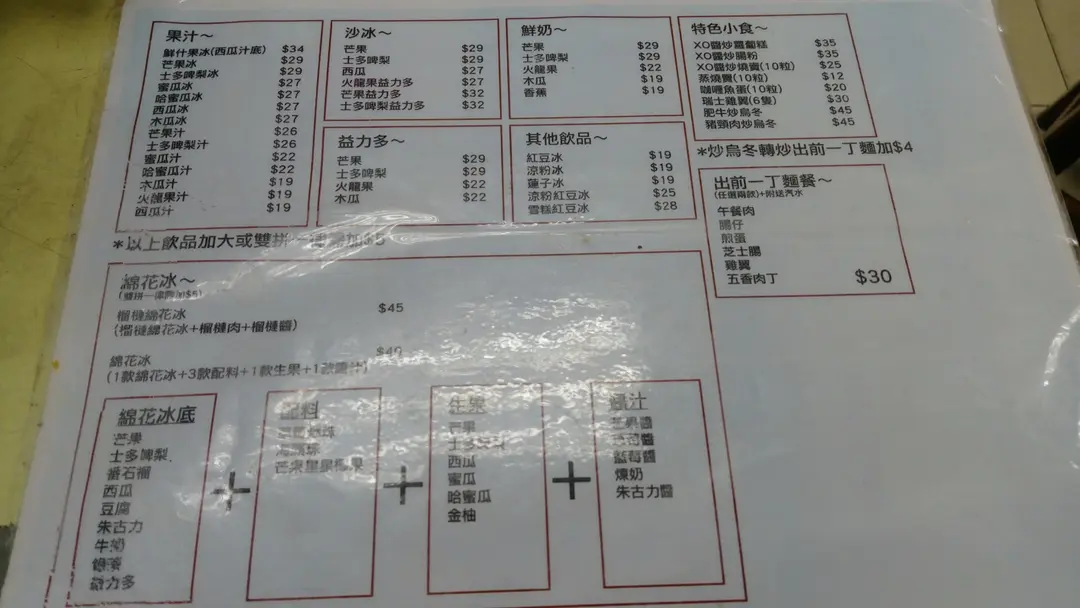 果汁～
鮮什果冰(西瓜汁底) $34
芒果冰 $29
士多啤梨冰 $29
蜜瓜冰 $27
哈蜜瓜冰 $27
西瓜冰 $27
木瓜冰 $27
芒果汁 $26
士多啤梨汁 $26
蜜瓜汁 $22
哈蜜瓜汁 $22
木瓜汁 $19
火龍果汁 $19
西瓜汁 $19
沙冰～
芒果 $29
士多啤梨 $29
西瓜 $27
火龍果益力多 $27
芒果益力多 $32
士多啤梨益力多 $32
益力多～
芒果 $29
士多啤梨 $29
火龍果 $22
木瓜 $22
鮮奶～
芒果 $29
士多啤梨 $29
火龍果 $22
木瓜 $19
香蕉 $19
其他飲品～
紅豆冰 $19
涼粉冰 $19
蓮子冰 $19
涼粉紅豆冰 $25
雪糕紅豆冰 $28
特色小食～
XO醬炒蘿蔔糕 $35
XO醬炒腸粉 $35
XO醬炒燒賣(10粒) $25
蒸燒賣(10粒) $12
咖喱魚蛋(10粒) $20
瑞士雞翼(6隻) $30
肥牛炒烏冬 $45
豬頸肉炒烏冬 $45
*炒烏冬轉炒出前一丁麵加$4
出前一丁麵餐～
(任選兩款)+附送汽水
午餐肉
腸仔
煎蛋
芝士腸
雞翼
五香肉丁 $30
*以上飲品加大或雙拼 加$5
綿花冰～
(雙拼一律加$5)
榴槤綿花冰 $45
(榴槤綿花冰+榴槤肉+榴槤醬)
綿花冰 $40
(1款綿花冰+3款配料+1款生果+1款醬汁)
綿花冰底
芒果
士多啤梨
番石榴
西瓜
豆腐
朱古力
牛奶
益力多
+
配料
+
生果
芒果
士多啤梨
西瓜
蜜瓜
哈蜜瓜
金柚
+
醬汁
芒果醬
藍莓醬
煉奶
朱古力醬